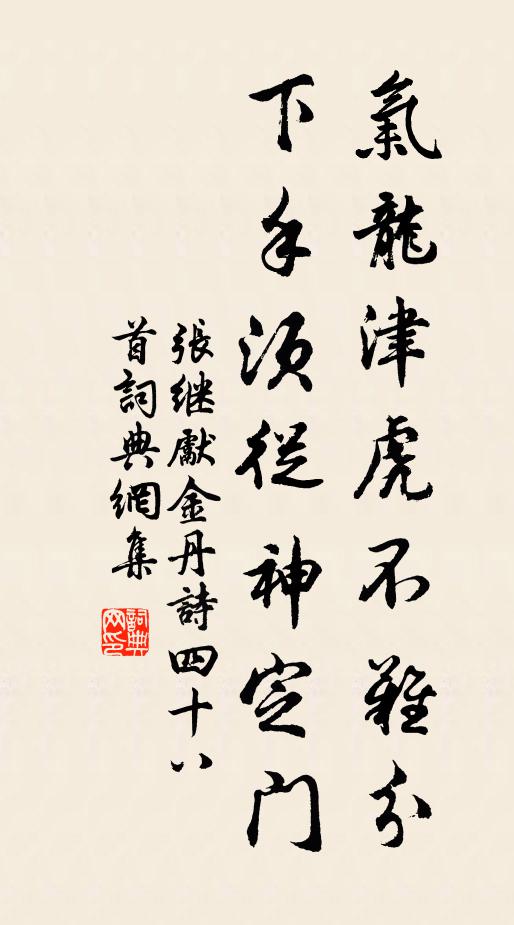 氣龍津虎不難分
下手須從神定門
張継獻金丹詩四十八
首詞典網集
詞典
网印